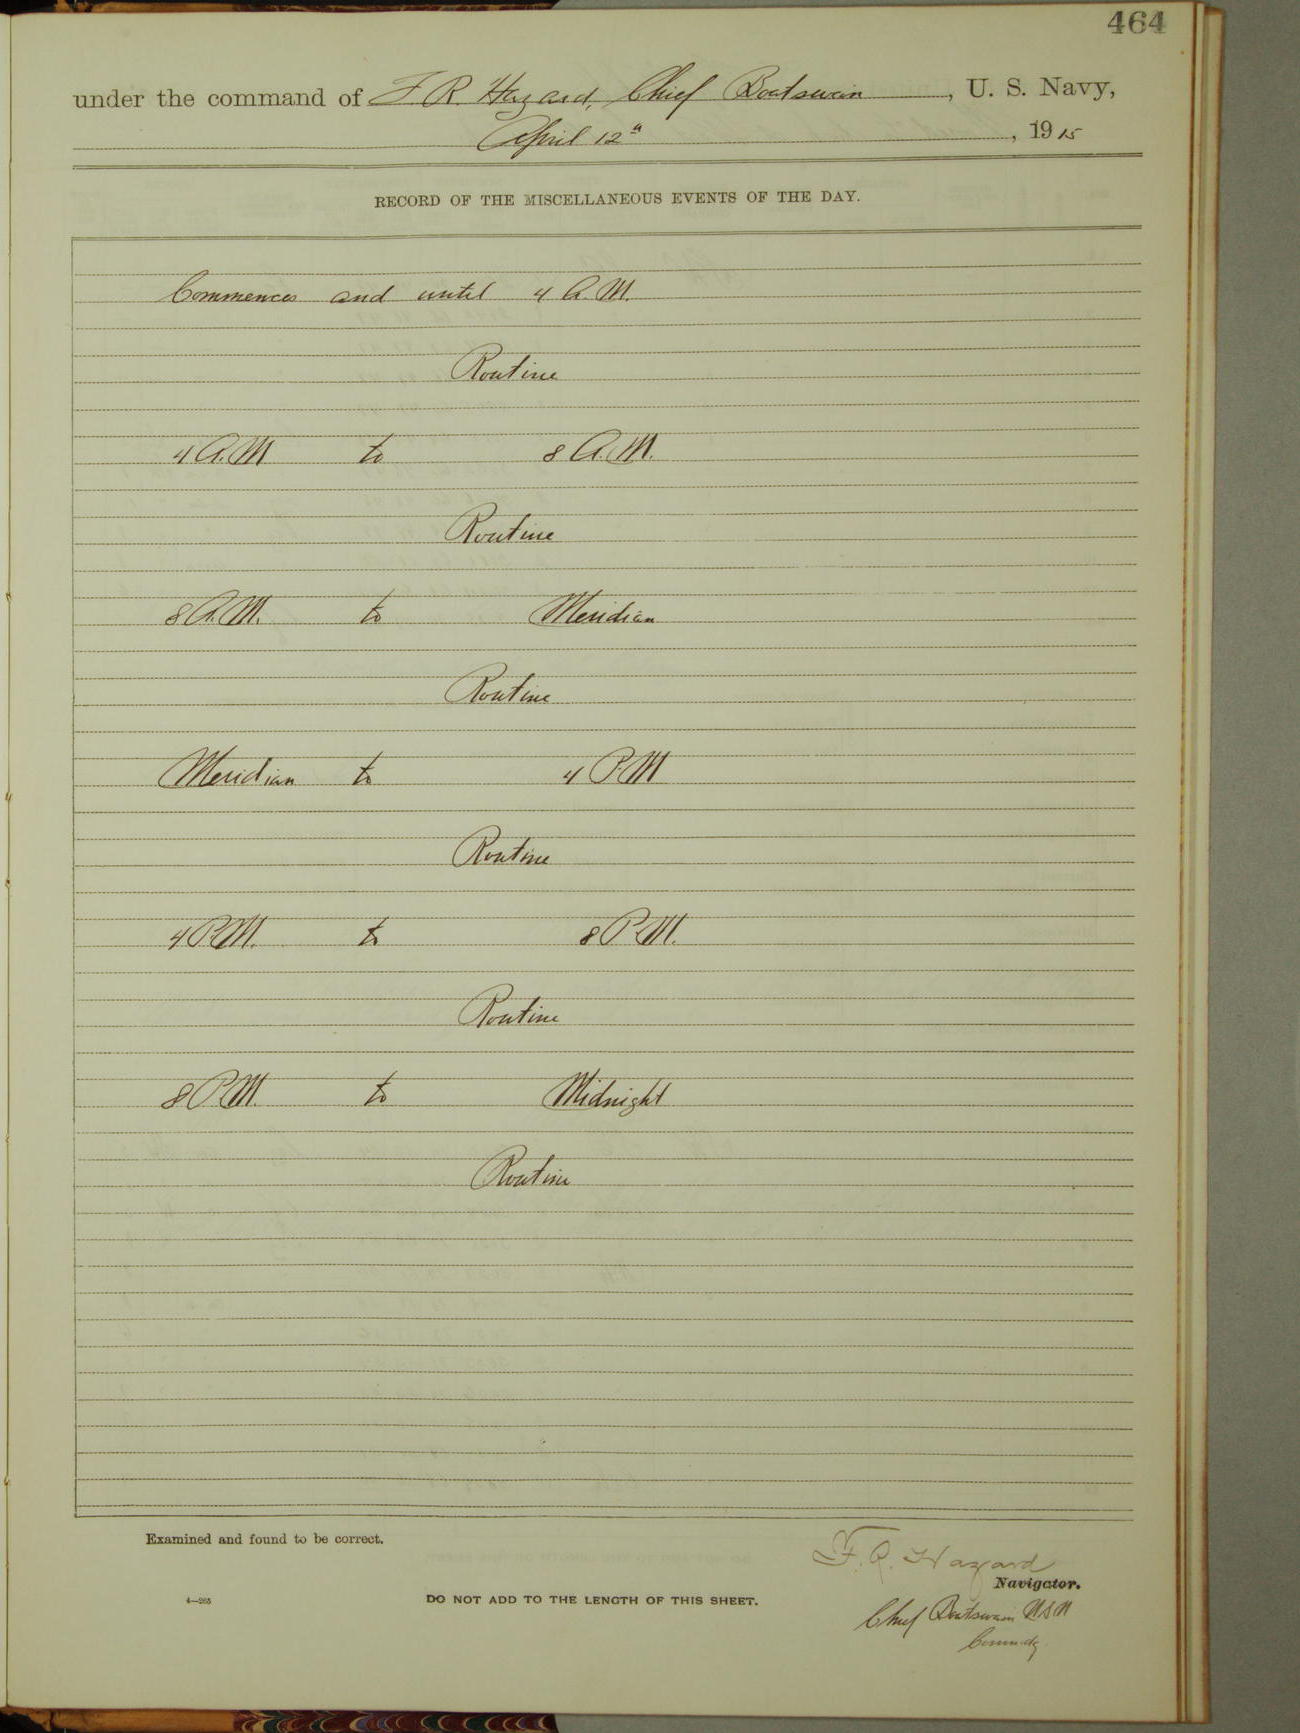 464
under the command of F. R. Hazard, Chief Boatswain, U. S. Navy,
April 12th, 1915
RECORD OF THE MISCELLANEOUS EVENTS OF THE DAY.
Commences and until 4 A.M.
Routine
4 A.M to 8 A.M.
Routine
8 A.M. to Meridian
Routine
Meridian to 4 P.M
Routine
4 P.M. to 8 P.M.
Routine
8 P.M. to Midnight
Routine
Examined and found to be correct.
F. R. Hazard
Navigator.
4—265
DO NOT ADD TO THE LENGTH OF THIS SHEET.
Chief Boatswain USN
Commdg.